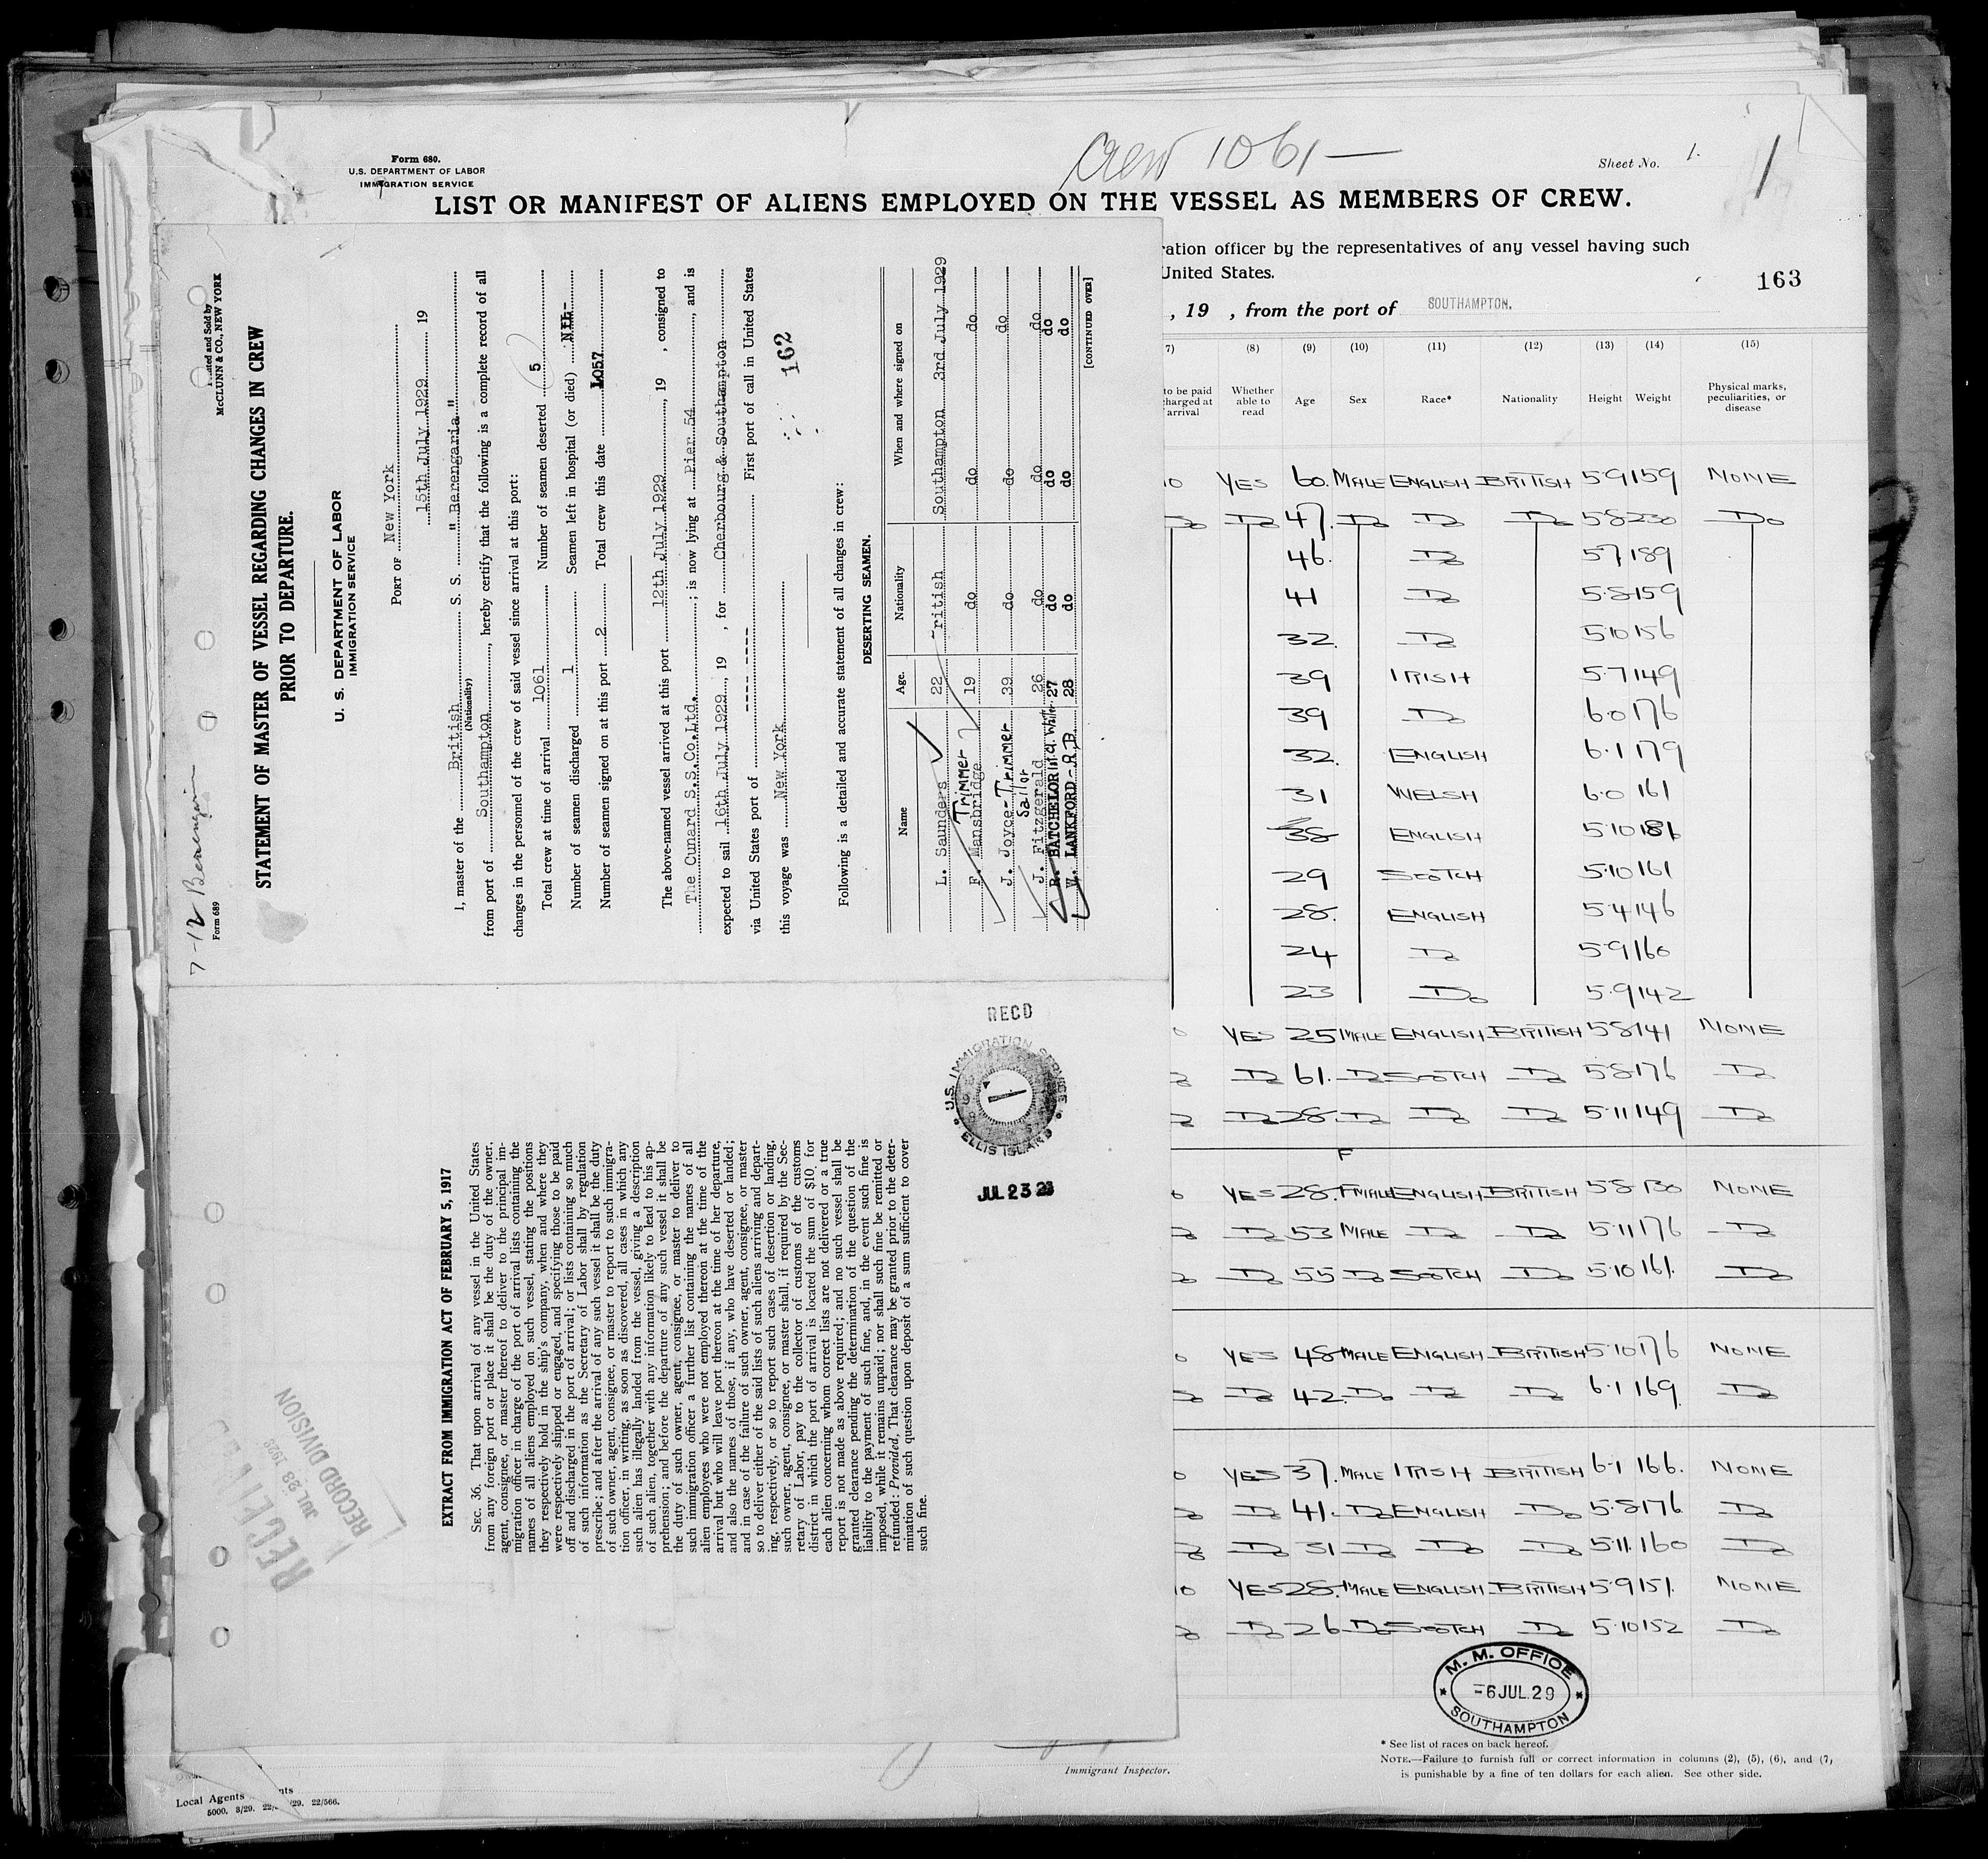 Form 680.
U.S. DEPARTMENT OF LABOR
IMMIGRATION SERVICE
Crew 1061 —
Sheet No. 1.
1
LIST OR MANIFEST OF ALIENS EMPLOYED ON THE VESSEL AS MEMBERS OF CREW.
ration officer by the representatives of any vessel having such
United States.
163
, 19 , from the port of SOUTHAMPTON.
7) (8) (9) (10) (11) (12) (13) (14) (15)
to be paid Whether Physical marks,
charged at able to Age Sex Race* Nationality Height Weight peculiarities, or
arrival read disease
YES 60. MALE ENGLISH BRITISH 5·9 159 NONE
Do Do 47. Do Do Do 5·8 230 Do
46. Do 5·7 189
41 Do 5·8 159
32. Do 5·10 156
39 IRISH 5·7 149
39 Do 6·0 176
32. ENGLISH 6·1 179
31 WELSH 6·0 161
38 ENGLISH 5·10 181
29 SCOTCH 5·10 161
28. ENGLISH 5·4 146
24 Do 5·9 160
23 Do 5·9 142
YES 25 MALE ENGLISH BRITISH 5·8 141 NONE
Do 61. Do SCOTCH Do 5·8 176 Do
Do 28 Do Do Do 5·11 149 Do
F
YES 28. FMALE ENGLISH BRITISH 5·8 130 NONE
Do 53 MALE Do Do 5·11 176 Do
Do 55 Do SCOTCH Do 5·10 161. Do
YES 48 MALE ENGLISH BRITISH 5·10 176 NONE
Do 42. Do Do Do 6·1 169. Do
YES 37. MALE IRISH BRITISH 6·1 166. NONE
Do 41. Do ENGLISH Do 5·8 176 Do
Do 31 Do Do Do 5·11. 160 Do
YES 28. MALE ENGLISH BRITISH 5·9 151. NONE
Do 26 Do SCOTCH Do 5·10 152 Do
M. M. OFFICE
-6 JUL. 29
SOUTHAMPTON
* See list of races on back hereof.
NOTE.—Failure to furnish full or correct information in columns (2), (5), (6), and (7,
is punishable by a fine of ten dollars for each alien. See other side.
Immigrant Inspector.
Local Agents
7-12 Berengaria
Form 689
Printed and Sold by
McCLUNN & CO., NEW YORK
STATEMENT OF MASTER OF VESSEL REGARDING CHANGES IN CREW
PRIOR TO DEPARTURE.
U. S. DEPARTMENT OF LABOR
IMMIGRATION SERVICE
PORT OF New York
15th July 1929 19
I, master of the British S. S. " Berengaria "
(Nationality)
from port of Southampton, hereby certify that the following is a complete record of all
changes in the personnel of the crew of said vessel since arrival at this port:
Total crew at time of arrival 1061 Number of seamen deserted 5
Number of seamen discharged 1 Seamen left in hospital (or died) NIL-
Number of seamen signed on at this port 2 Total crew this date 1057
The above-named vessel arrived at this port 12th July 1929, 19 , consigned to
The Cunard S.S.Co.Ltd.; is now lying at Pier 54, and is
expected to sail 16th July 1929, 19 , for Cherbourg & Southampton
via United States port of ---- ---- First port of call in United States
this voyage was New York 162
Following is a detailed and accurate statement of all changes in crew:
DESERTING SEAMEN.
Name Age. Nationality When and where signed on
L. Saunders 22 British Southampton 3rd July 1929
Trimmer
F. Mansbridge 19 do do do
J. Joyce - Trimmer 39 do do do
Sailor
J. Fitzgerald 26 do do do
R. BATCHELOR 1st cl. Waiter 27 do do do
W. LANKFORD - A.B. 28 do do do
[CONTINUED OVER]
EXTRACT FROM IMMIGRATION ACT OF FEBRUARY 5, 1917
SEC. 36. That upon arrival of any vessel in the United States
from any foreign port or place it shall be the duty of the owner,
agent, consignee, or master thereof to deliver to the principal im-
migration officer in charge of the port of arrival lists containing the
names of all aliens employed on such vessel, stating the positions
they respectively hold in the ship's company, when and where they
were respectively shipped or engaged, and specifying those to be paid
off and discharged in the port of arrival; or lists containing so much
of such information as the Secretary of Labor shall by regulation
prescribe; and after the arrival of any such vessel it shall be the duty
of such owner, agent, consignee, or master to report to such immigra-
tion officer, in writing, as soon as discovered, all cases in which any
such alien has illegally landed from the vessel, giving a description
of such alien, together with any information likely to lead to his ap-
prehension; and before the departure of any such vessel it shall be
the duty of such owner, agent, consignee, or master to deliver to
such immigration officer a further list containing the names of all
alien employees who were not employed thereon at the time of the
arrival but who will leave port thereon at the time of her departure,
and also the names of those, if any, who have deserted or landed;
and in case of the failure of such owner, agent, consignee, or master
so to deliver either of the said lists of such aliens arriving and depart-
ing, respectively, or so to report such cases of desertion or landing,
such owner, agent, consignee, or master shall, if required by the Sec-
retary of Labor, pay to the collector of customs of the customs
district in which the port of arrival is located the sum of $10 for
each alien concerning whom correct lists are not delivered or a true
report is not made as above required; and no such vessel shall be
granted clearance pending the determination of the question of the
liability to the payment of such fine, and, in the event such fine is
imposed, while it remains unpaid; nor shall such fine be remitted or
refunded: Provided, That clearance may be granted prior to the deter-
mination of such question upon deposit of a sum sufficient to cover
such fine.
RECD
U.S. IMMIGRATION SERVICE
ELLIS ISLAND
JUL 23 29
RECEIVED
JUL 28 1929
RECORD DIVISION
5000. 3/29. 22/566.